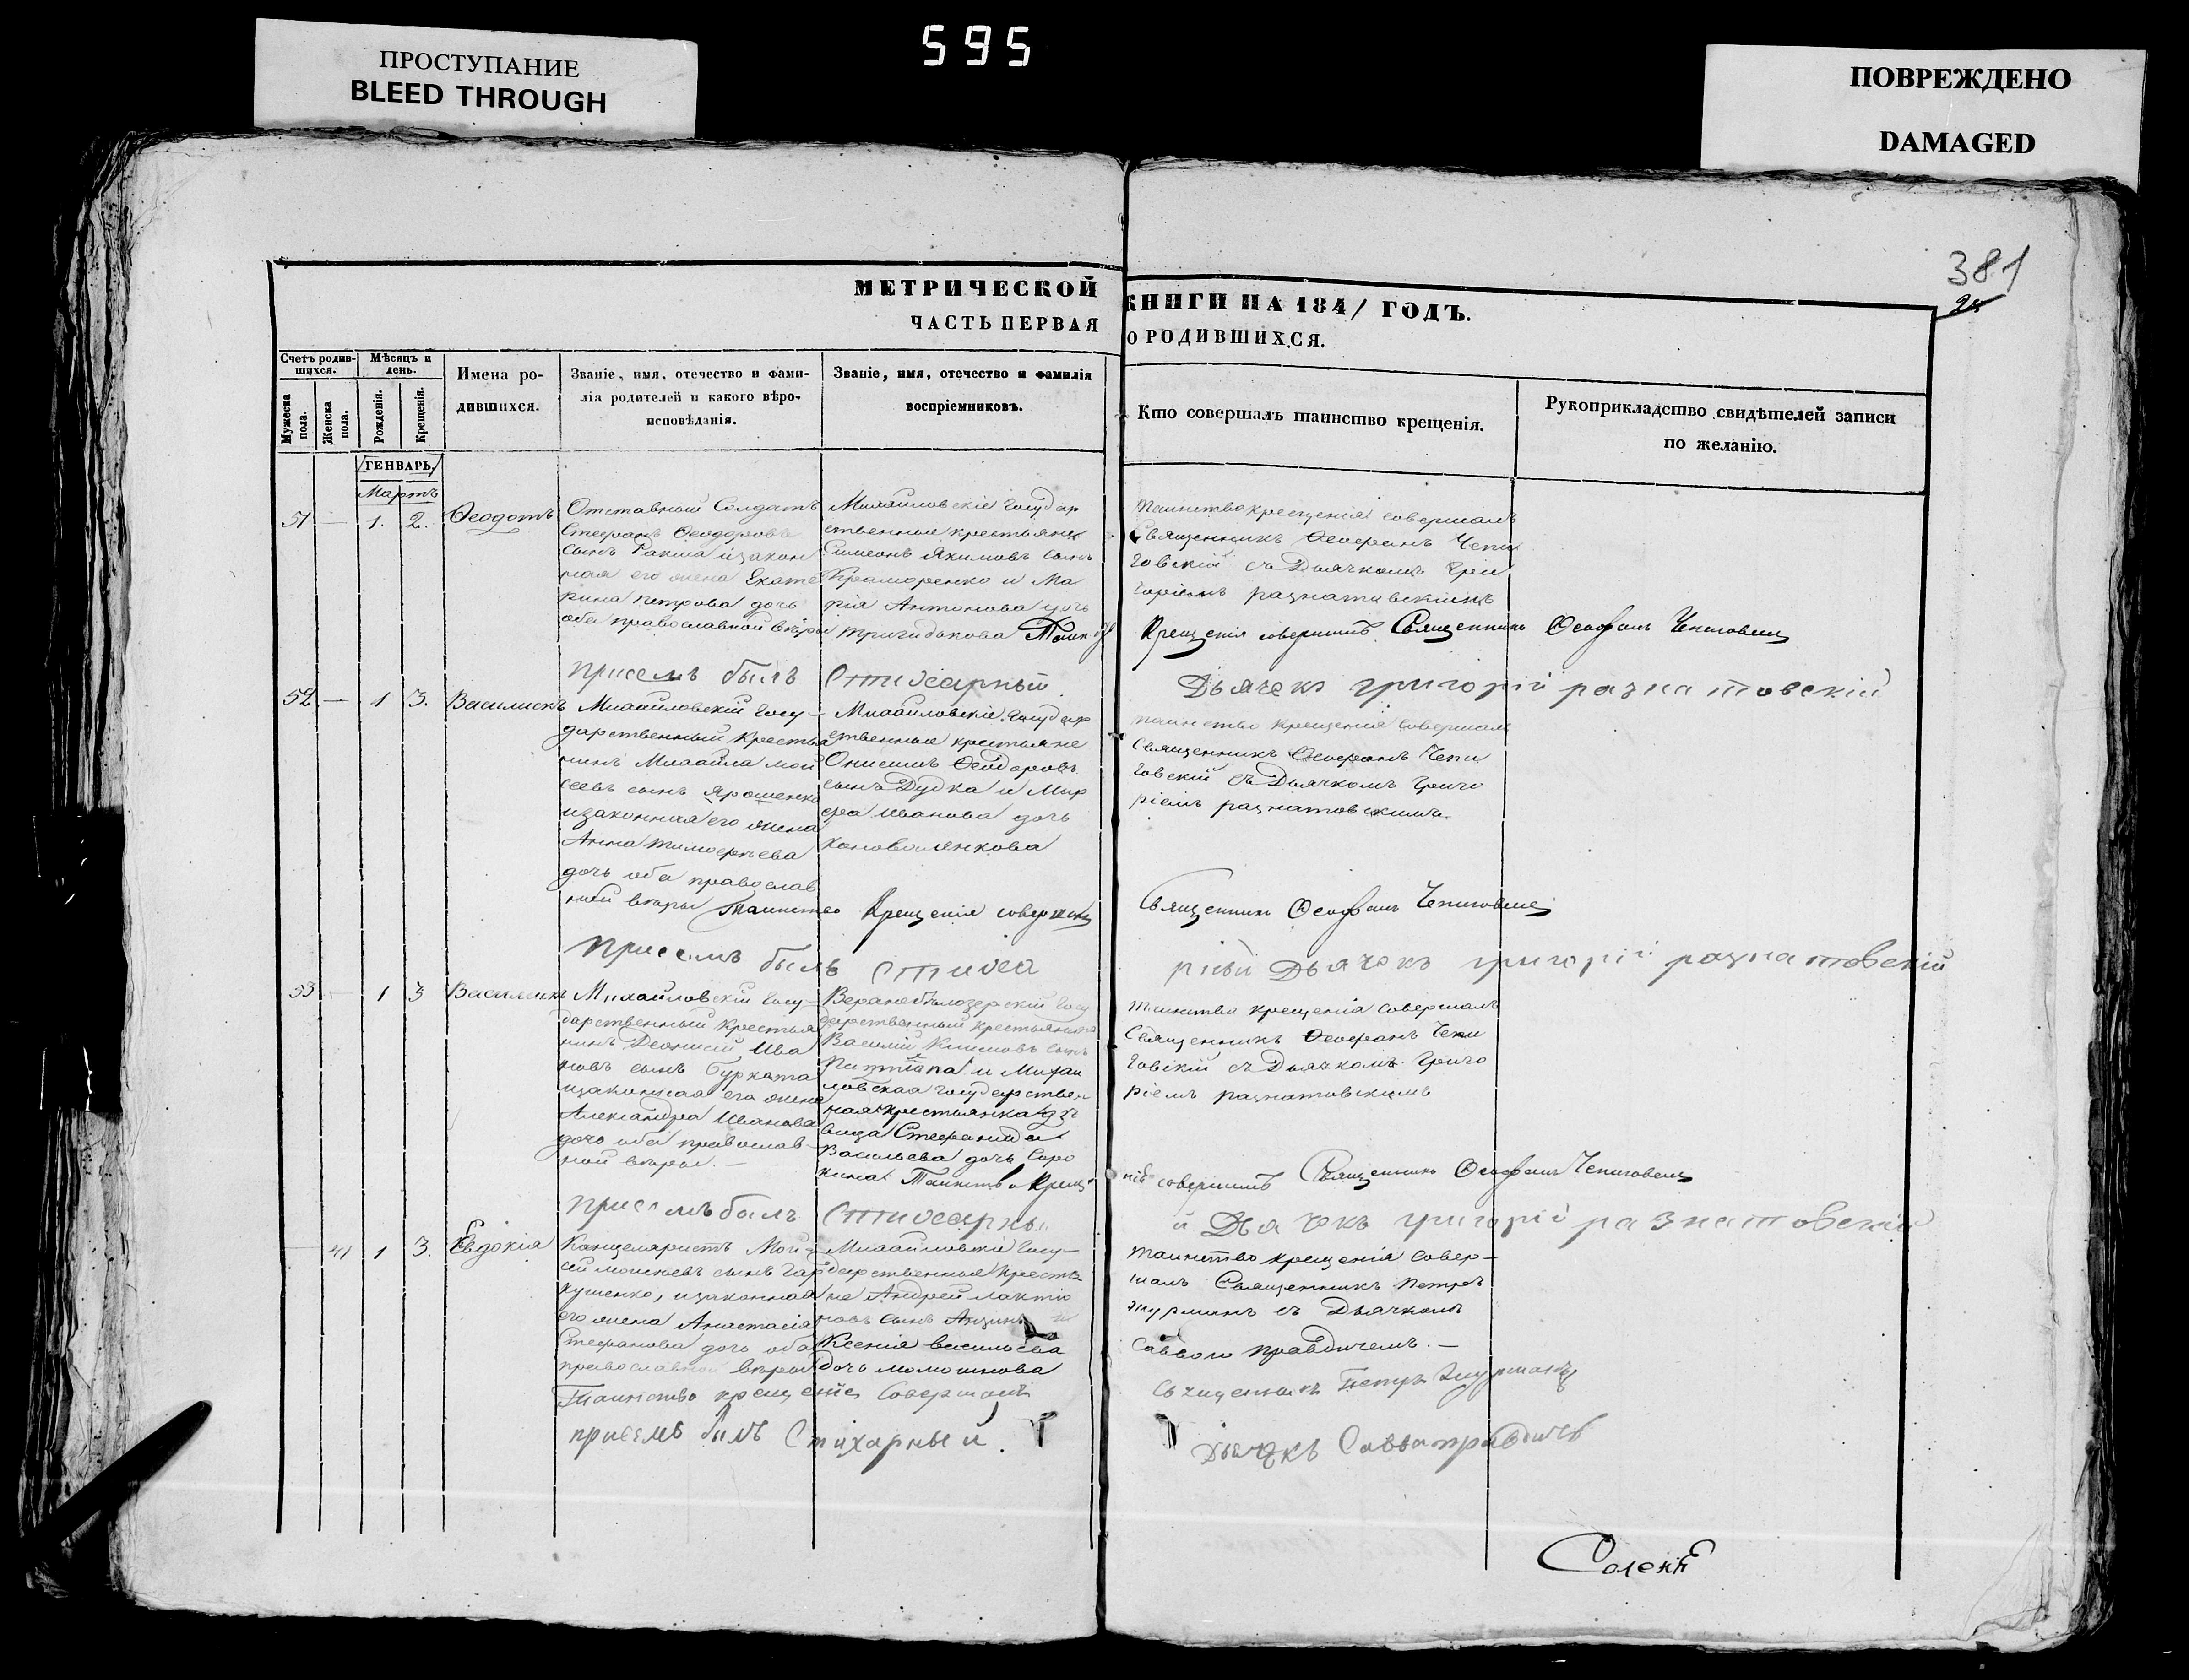 ПРОСТУПАНИЕ
BLEED THROUGH
595
ПОВРЕЖДЕНО
DAMAGED
381
МЕТРИЧЕСКОЙ КНИГИ НА 1841 ГОДЪ.
ЧАСТЬ ПЕРВАЯ О РОДИВШИХСЯ.
Счетъ родив-
шихся.
Мужеска
пола.
Женска
пола.
Мѣсяцъ и
день.
Рожденія.
Крещенія.
Имена ро-
дившихся.
Званіе, имя, отечество и фами-
лія родителей и какого вѣро-
исповѣданія.
Званіе, имя, отечество и фамилія
воспріемниковъ.
Кто совершалъ таинство крещенія.
Рукоприкладство свидѣтелей записи
по желанію.
ГЕНВАРЬ.
Мартъ
51 — 1. 2. Ѳеодотъ
Отставный Солдатъ
Стефанъ Ѳеодоровъ
сынъ изакон
ная его жена Екате
рина Петрова дочь
оба православной вѣры
Михайловскіе Государ
ственные крестьяне
Симеонъ Якимовъ сынъ
Краморенко и Ма
рія Антонова дочь
Таин
таинство крещенія совершалъ
Священникъ Ѳеофанъ Чепи
говскій съ Дьячкомъ Гри
горіемъ разнатовскимъ
Крещенія совершилъ Священникъ Ѳеофанъ Чепиговскій
присемъ былъ Стихарный Дьячекъ григорій разнатовскій
52 — 1 3. Василискъ
Михайловскій Госу-
дарственный Крестья
нинъ Михаила Мой
сеевъ сынъ Ярошенко
изаконная его жена
Анна Тимофеева
дочь оба православ
ной вѣры
Михайловскіе Государ
ственные крестьяне
Онисимъ Ѳеодоровъ
сынъ Дудка и Мар
фа Иванова дочь
Коноваленкова
таинство крещенія совершалъ
Священникъ Ѳеофанъ Чепи
говскій съ Дьячкомъ Григо
ріемъ разнатовскимъ.
Таинство Крещенія совершилъ Священникъ Ѳеофанъ Чепиговскій
присемъ былъ Стиха рный Дьячокъ григорій разнатовскій
53 — 1 3 Василискъ
Михайловскій Госу-
дарственный Крестья
нинъ Деонисій Ива
новъ сынъ Бурхата
изаконная его жена
Александра Иванова
дочь оба православ-
ной вѣры. —
Верхнебѣлозерскій Госу
дарственный крестьянинъ
Василій Климовъ сынъ
и Михай
ловская Государствен
ная крестьянка дѣ
вица Стефанида
Васильева дочь Соро
кина
таинство крещенія совершалъ
Священникъ Ѳеофанъ Чепи
говскій съ Дьячкомъ Григо
ріемъ разнатовскимъ
Таинство Крещ нія совершилъ Священникъ Ѳеофанъ Чепиговскій
присемъ былъ Стихарны й Дьячокъ григорій разнатовскій
— 41 1 3. Евдокія
Канцеляристъ Мой-
сей Моисѣевъ сынъ Гар
кушенко, изаконная
его жена Анастасія
Стефанова дочь оба
православной вѣры
Михайловскіе Госу-
дарственныя Крестья
не Андрей Лактіо
новъ сынъ
Ксенія Васильева
дочь
таинство крещенія совер-
шалъ Священникъ Петръ
Шурманъ съ Дьячкомъ
Саввою Правдичемъ. —
Таинство крещеніе Совершалъ Священникъ Петръ Шурманъ
присемъ былъ Стихарный. Дьячекъ Савва правдичъ